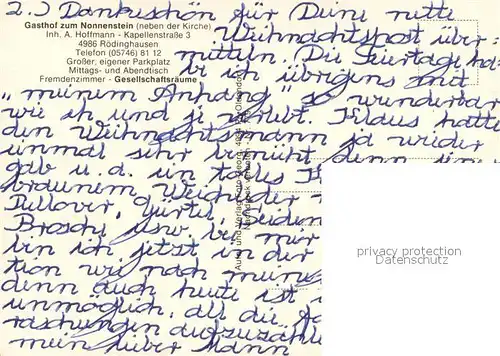 2.) Dankeschön für Deine nette
Gasthof zum Nonnenstein (neben der Kirche)
Inh. A. Hoffmann - Kapellenstraße 3
4986 Rödinghausen
Telefon (05746) 81 12
Großer, eigener Parkplatz
Mittags- und Abendtisch
Fremdenzimmer - Gesellschaftsräume
Weihnachtspost über=
mitteln. Die Feiertage ha
be ich übrigens mit
„meinem Anhang" so wunderbar
wie ich und je verlebt. Klaus hatte
den Weihnachtsmann ja wieder
unmal sehr bemüht denn
gab u. a. ein tolles
braunem Weichleder
Pullover, Gürtel, Seiden
Brosche usw. bei mir
bin ich jetzt in der
tion wie nach meine
denn auch heute ist
unmöglich, all die
raschungen aufzuzähle
mein lieber Mann
privacy protection
Datenschutz